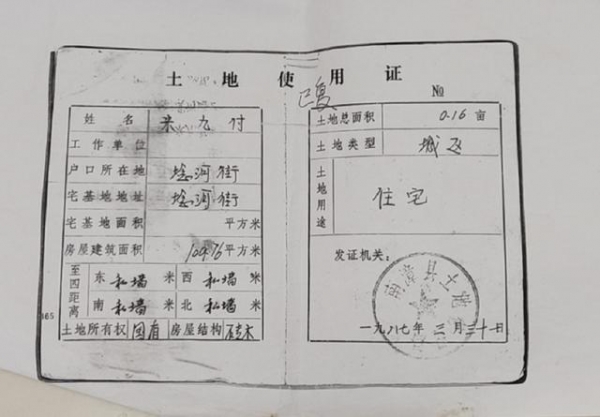 土地使用证
已复
№
姓名 米九付
工作单位
户口所在地 河街
宅基地地址 河街
宅基地面积 平方米
房屋建筑面积 104.76平方米
至四距离
东 私墙 米 西 私墙 米
南 私墙 米 北 私墙 米
土地所有权 国有 房屋结构 砖木
165
土地总面积 0.16 亩
土地类型 城区
土地用途 住宅
发证机关:
南漳县土地
一九八七年 三月三十日